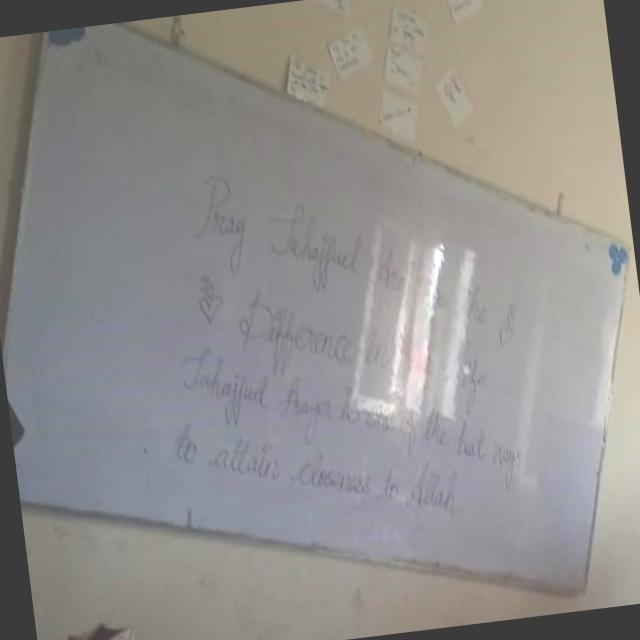 Pray Tahajjud the
Difference in life
Tahajjud Prayer is one of the best ways
to attain closeness to Allah